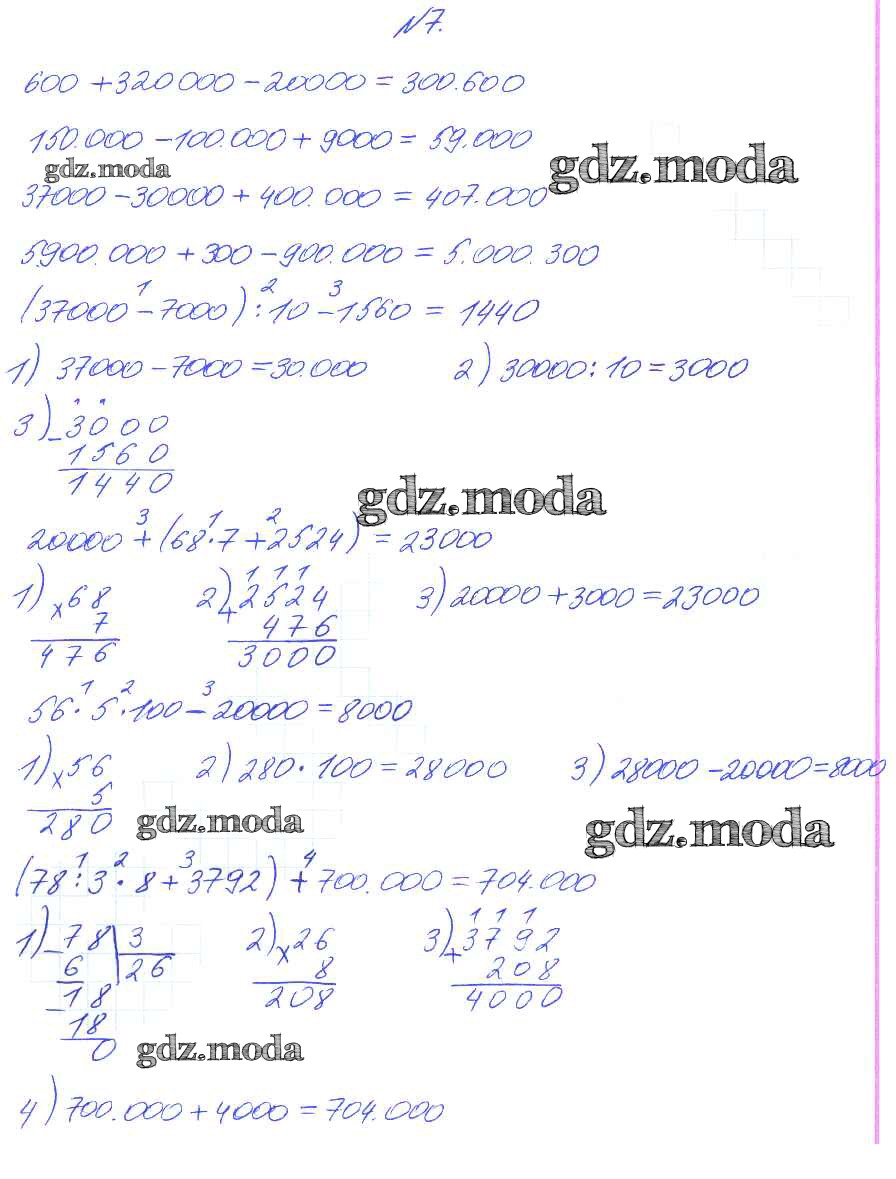 №7.
600 + 320 000 - 20000 = 300.600
150.000 - 100.000 + 9000 = 59.000
gdz.moda
gdz.moda
37000 - 30000 + 400.000 = 407.000
5900.000 + 300 - 900.000 = 5.000.300
1 2 3
(37000 - 7000) : 10 - 1560 = 1440
1) 37000 - 7000 = 30.000 2) 30000 : 10 = 3000
3) - 3000
1560
1440
gdz.moda
3 1 2
20000 + (68 · 7 + 2524) = 23000
1 1 1
1) x 68 2) + 2524 3) 20000 + 3000 = 23000
7 476
476 3000
1 2 3
56 · 5 · 100 - 20000 = 8000
1) x 56 2) 280 · 100 = 28000 3) 28000 - 20000 = 8000
5
280
gdz.moda
gdz.moda
1 2 3 4
(78 : 3 · 8 + 3792) + 700.000 = 704.000
1 1 1
1) - 78 | 3 2) x 26 3) + 3792
6 26 8 208
- 18 208 4000
18
0
gdz.moda
4) 700.000 + 4000 = 704.000